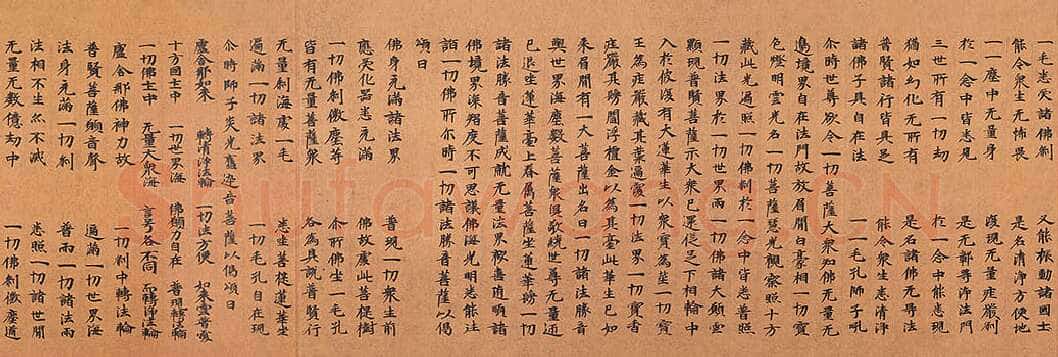 一毛悉受諸佛刹 又能振動諸國土
能令衆生无怖畏 是名清淨方便地
一一塵中无量身 復現无量莊嚴刹
於一念中皆悉見 是无鄣导淨法門
三世所有一切劫 於一念中能悉現
猶如幻化无所有 是名諸佛无导法
普賢諸行皆具足 能令衆生悉清淨
諸佛子具自在法 一一毛孔師子吼
尒時世尊欲令一切菩薩大衆知佛无量无
邊境界自在法門故放眉閒白毫相一切寶
色燈明雲光名一切菩薩慧光觀察照十方
藏此光遍照一切佛刹於一念中皆悉普照
一切法界於一切世界雨一切佛諸大願雲
顯現普賢菩薩示大衆已還從足下相輪中
入於彼復有大蓮華生以衆寶為莖一切寶
王為莊嚴藏其葉遍覆一切法界一切寶香
莊嚴其鬚閻浮檀金以為其臺此華生已如
來眉閒有一大菩薩出名曰一切諸法勝音
與世界海塵數菩薩衆俱繞世尊无量迊
已退坐蓮華臺上眷屬菩薩坐蓮華鬚一切
諸法勝音菩薩成就无量法界歡喜遁諸
佛境界深智度不可思議佛海光明悉能往
詣一切佛所尒時一切諸法勝音菩薩以偈
頌曰
佛身充滿諸法界 普現一切衆生前
應受化器悉充滿 佛故處此菩提樹
一切佛刹微塵等 尒所佛坐一毛孔
皆有无量菩薩衆 各為具說普賢行
无量刹海處一毛 悉坐菩提蓮華坐
遍滿一切諸法界 一切毛孔自在現
尒時師子炎光奮迅音菩薩以偈頌曰
盧舍那如來 轉清淨法輪 一切法方便 如來雲普覆
十方國土中 一切世界海 佛願力自在 普現轉法輪
一切佛土中 无量大衆海 言号各不同 而轉淨法輪
盧舍那佛神力故 一切刹中轉法輪
普賢菩薩願音聲 遍滿一切世界海
法身充滿一切刹 普雨一切諸法雨
法相不生亦不滅 悉照一切諸世間
无量无數億劫中 一切佛刹微塵道